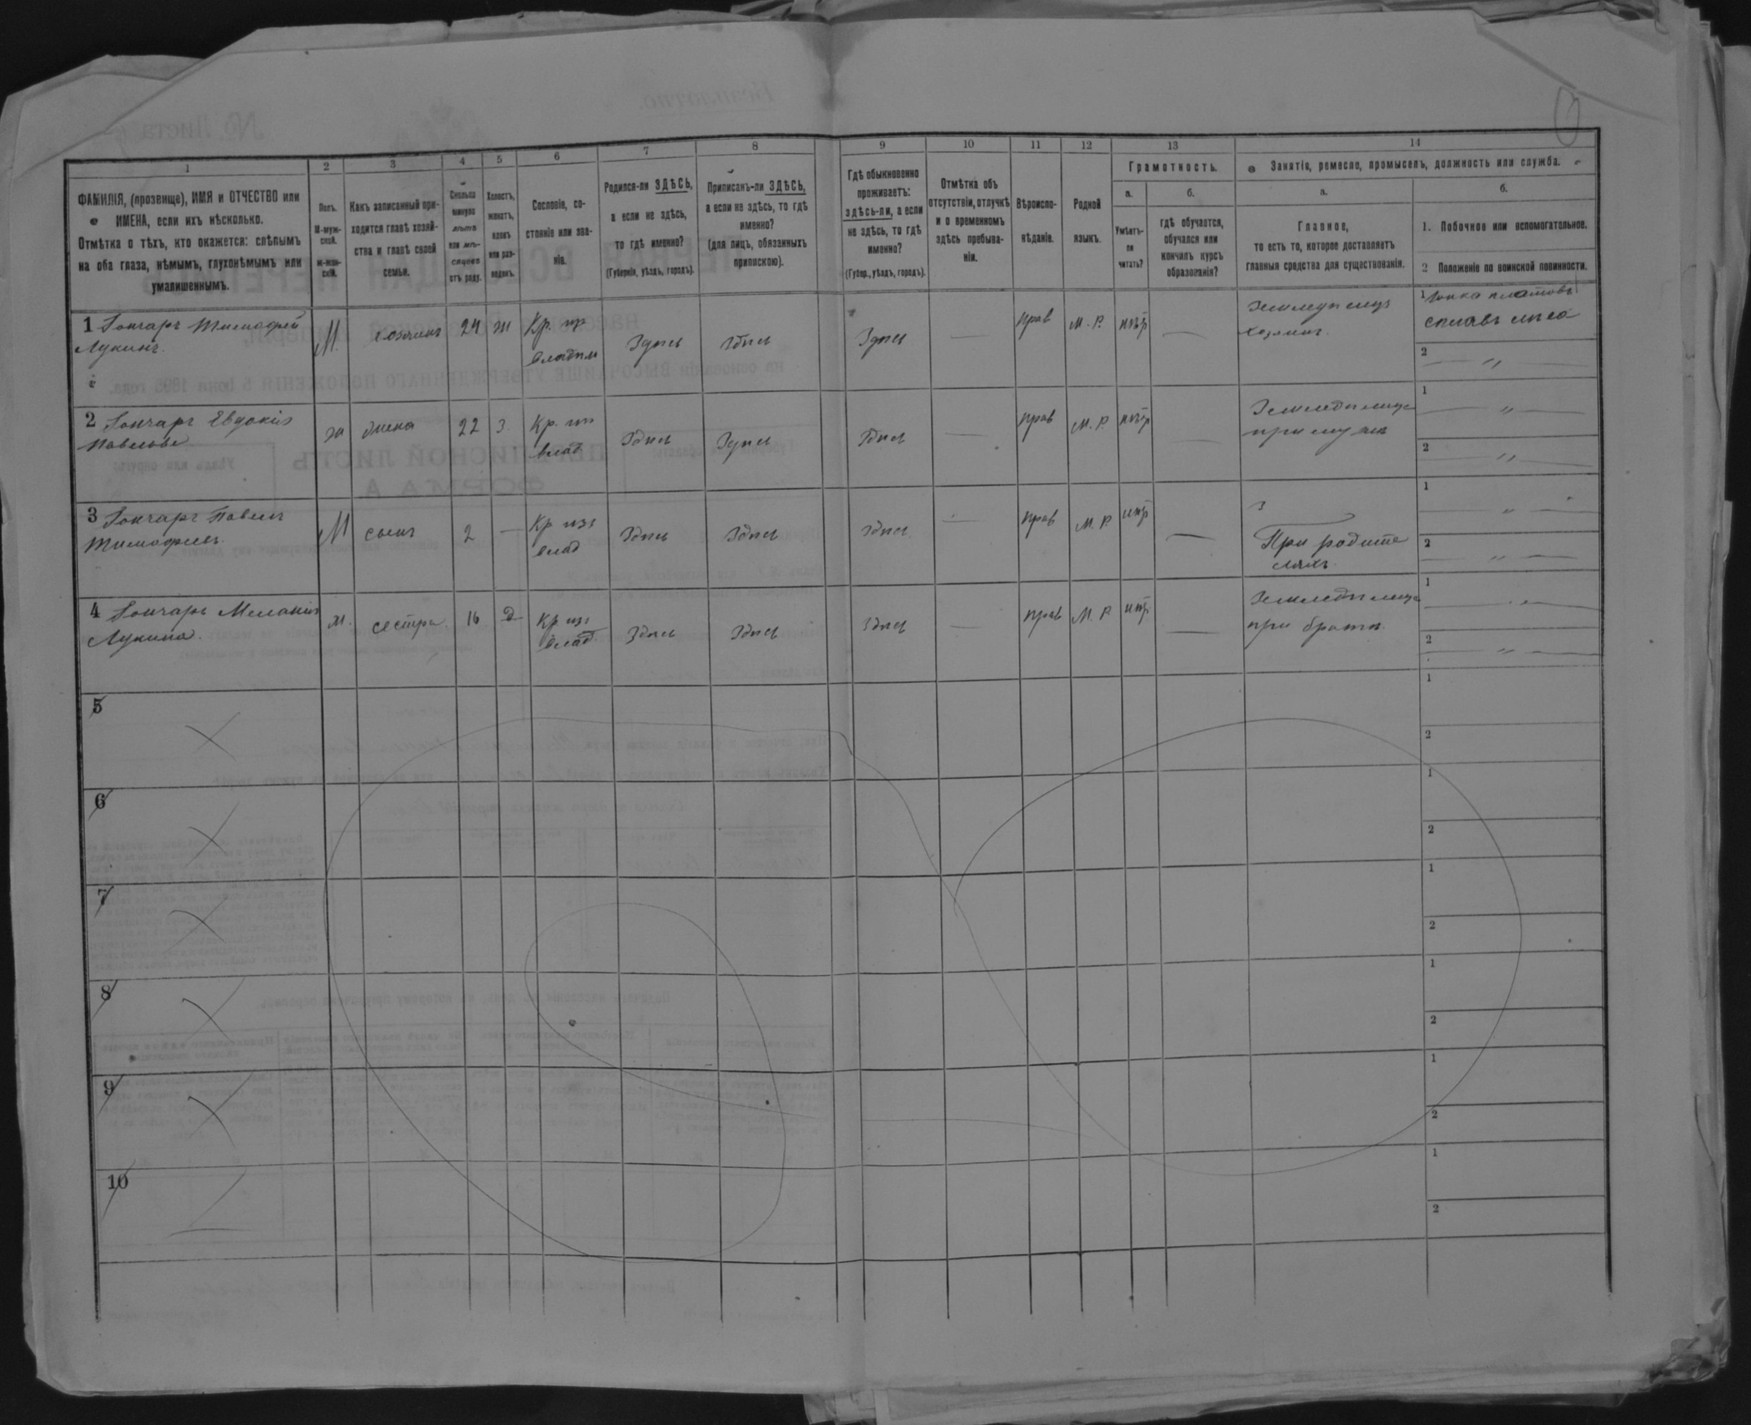 1 2 3 4 5 6 7 8 9 10 11 12 13 14
ФАМИЛІЯ, (прозвище), ИМЯ и ОТЧЕСТВО или
ИМЕНА, если ихъ нѣсколько.
Отмѣтка о тѣхъ, кто окажется: слѣпымъ
на оба глаза, нѣмымъ, глухонѣмымъ или
умалишеннымъ.
Полъ.
М-муж-
ской.
Ж-жен-
скій.
Какъ записанный при-
ходится главѣ хозяй-
ства и главѣ своей
семьи.
Сколько
минуло
лѣтъ
или мѣ-
сяцевъ
отъ роду.
Холостъ,
женатъ,
вдовъ
или раз-
веденъ.
Сословіе, со-
стояніе или зва-
ніе.
Родился-ли ЗДѢСЬ,
а если не здѣсь,
то гдѣ именно?
(Губернія, уѣздъ, городъ).
Приписанъ-ли ЗДѢСЬ,
а если не здѣсь, то гдѣ
именно?
(для лицъ, обязанныхъ
припискою).
Гдѣ обыкновенно
проживаетъ:
здѣсь-ли, а если
не здѣсь, то гдѣ
именно?
(Губер., уѣздъ, городъ).
Отмѣтка объ
отсутствіи, отлучкѣ
и о временномъ
здѣсь пребыва-
ніи.
Вѣроиспо-
вѣданіе.
Родной
языкъ.
Грамотность.
а.
Умѣетъ-
ли
читать?
б.
гдѣ обучается,
обучался или
кончилъ курсъ
образованія?
Занятіе, ремесло, промыселъ, должность или служба.
а.
Главное,
то есть то, которое доставляетъ
главныя средства для существованія.
б.
1. Побочное или вспомогательное.
2 Положеніе по воинской повинности.
1 Гончаръ Тимофей
Лукинъ
М. хозяинъ 24 ж Кр. из
владѣл
Здѣсь Здѣсь Здѣсь — прав М. Р. нѣт —
Земледѣлецъ
хозяинъ.
1 Гонка плотовъ
сплавъ лѣса
2 — „ —
2 Гончаръ Евдокія
Павлова
ж жена 22 з Кр. из
влад
Здѣсь Здѣсь Здѣсь — прав М. Р. —
Земледѣлица
при мужѣ
1 — „ —
2 — „ —
3 Гончаръ Павелъ
Тимофеев
М сынъ 2 — Кр изъ
влад
Здѣсь Здѣсь Здѣсь — прав М. Р. —
При родите
ляхъ
1 — „ —
2 — „ —
4 Гончаръ Меланія
Лукина
ж. сестра 16 д Кр изъ
влад
Здѣсь Здѣсь Здѣсь — прав М. Р. —
Земледѣлица
при братѣ
1 — „ —
2 — „ —
5
1
2
6
1
2
7
1
2
8
1
2
9
1
2
10
1
2